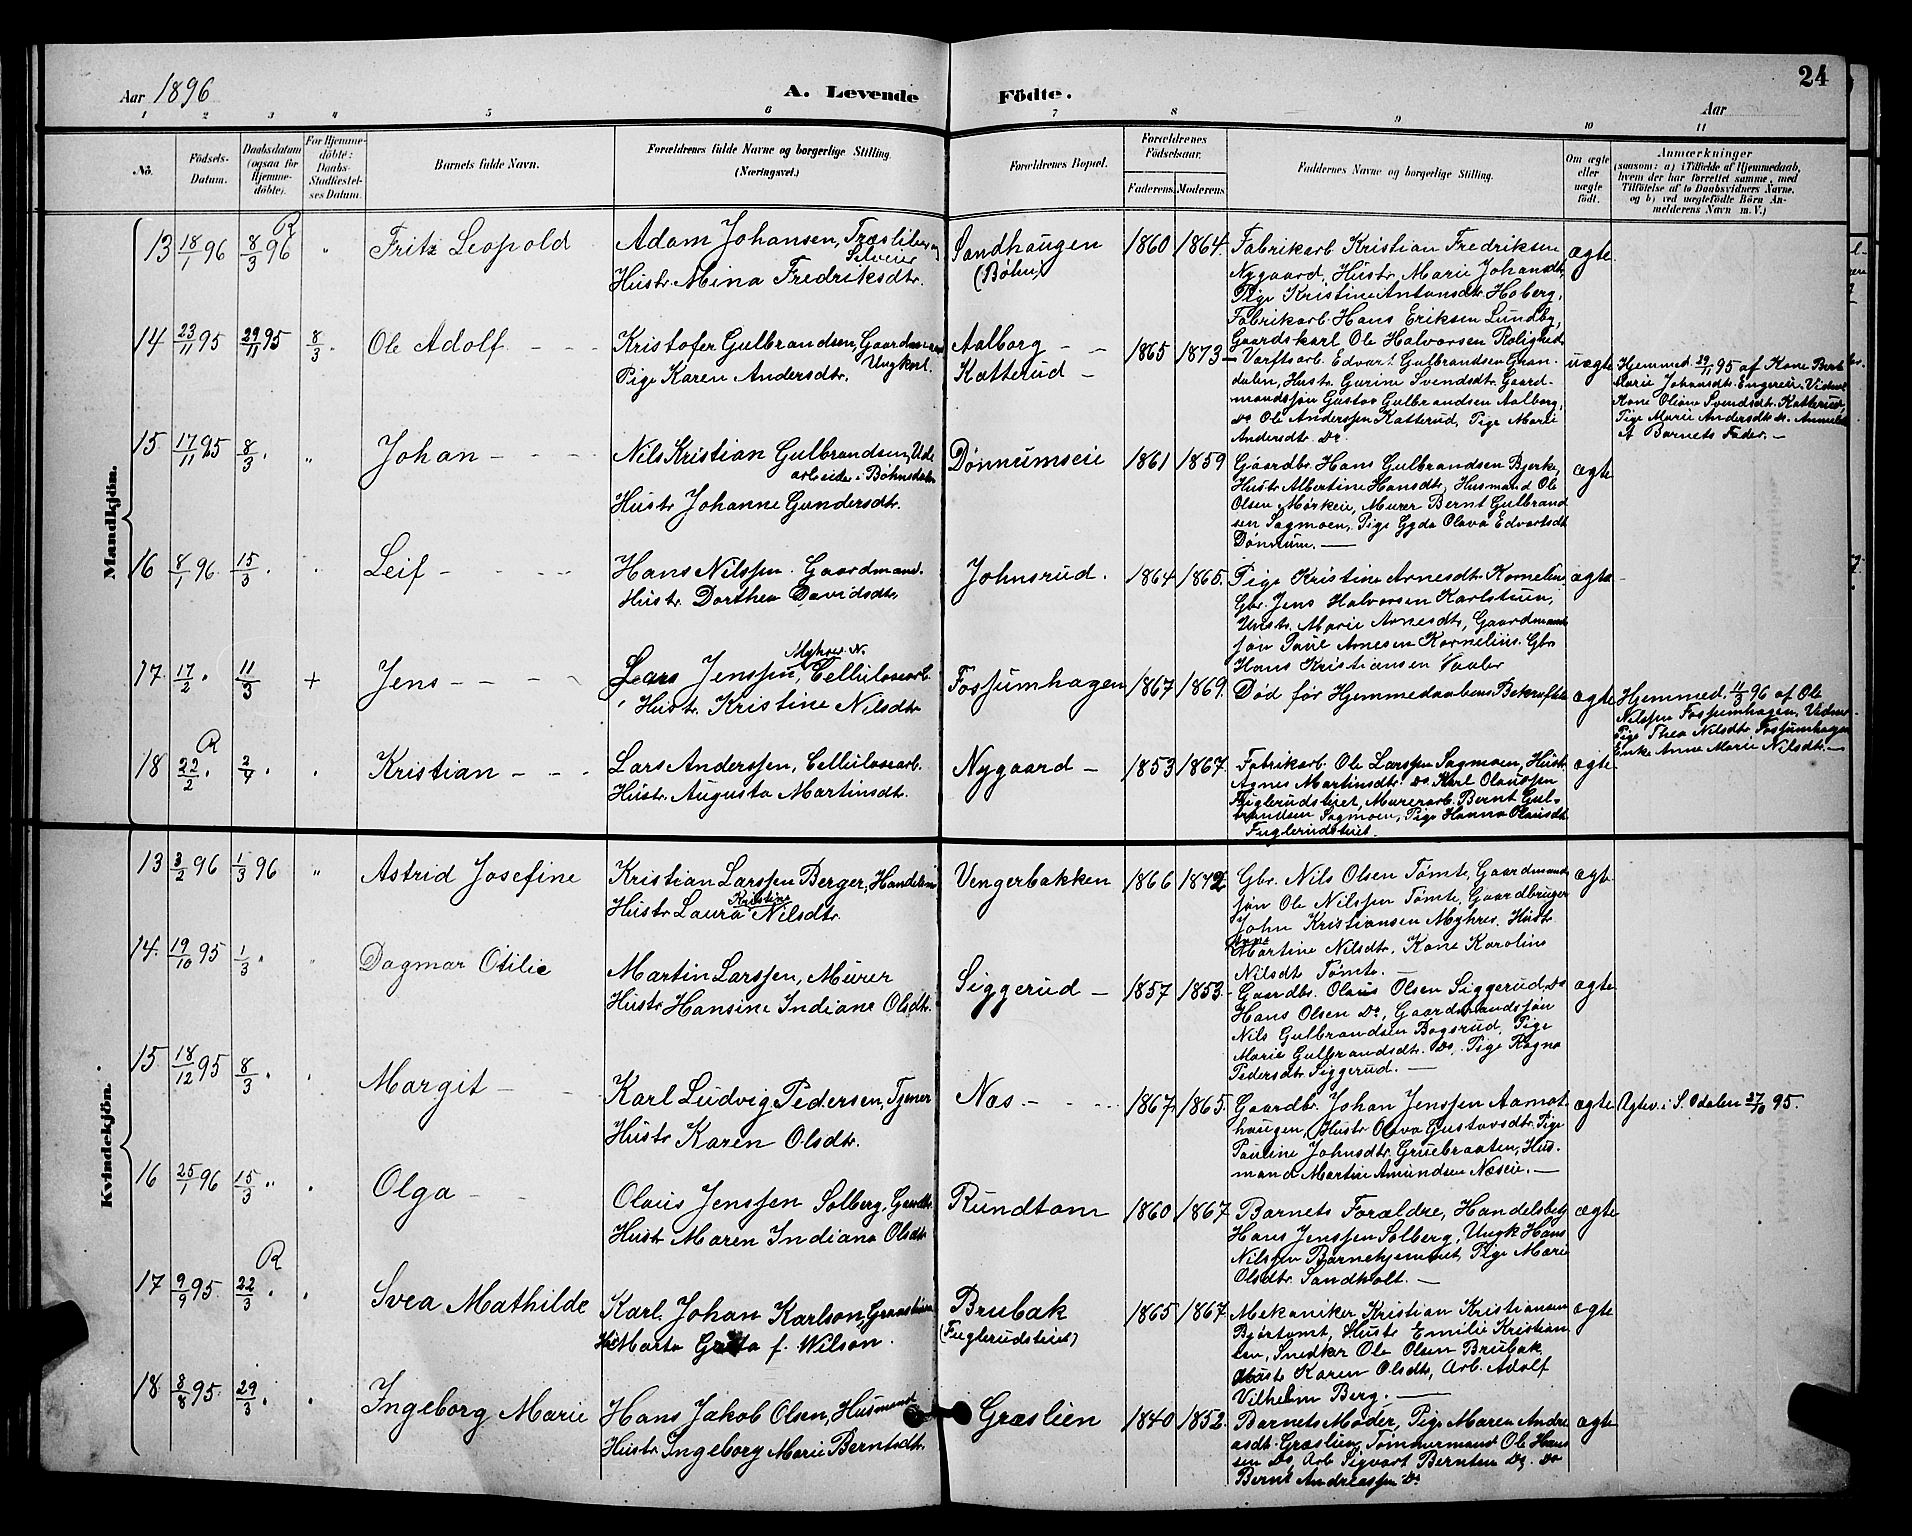 Aar 1896
A. Levende Födte.
Aar
24
1 2 3 4 5 6 7 8 9 10 11
No.
Födsels-Datum.
Daabsdatum (ogsaa for Hjemme-döbte).
For Hjemme-döbte: Daabs-Stadfæstel-ses Datum.
Barnets fulde Navn.
Forældrenes fulde Navne og borgerlige Stilling.
(Næringsvei.)
Forældrenes Bopæl.
Forældrenes Födselsaar.
Faderens. Moderens.
Faddernes Navne og borgerlige Stilling.
Om ægte eller uægte födt.
Anmærkninger
(saasom: a) i Tilfælde af Hjemmedaab, hvem der har forrettet samme, med Tilföielse af to Daabsvidners Navne, og b) ved uægtefödte Börn An-melderens Navn m. V.)
Mandkjön.
13 18/1 96 R 8/3 96 " Fritz Leopold
Adam Johansen, Træsliber
Hustr. Mina Fredriksdtr.
Sandhaugen
(Bøhn)
1860 1864.
Fabrikarb. Kristian Fredriksen
Nygaard, Hustr. Marie Johansdtr,
Pige Kristine Antonsdtr Hoberg,
Fabrikarb. Hans Eriksen Lundby,
Gaardskarl Ole Halvorsen Rolighed
ægte
14 23/11 95 29/11 95 8/3 . Ole Adolf - - -
Kristofer Gulbrandsen, Gaardmands
Ungkarl.
Pige Karen Andersdtr.
Aalborg - -
Katterud -
1865 1873
Verftsarb. Edvart Gulbrandsen Gran-
dalen, Hustr. Gurine Svendsdtr. Gaard-
mandssøn Gustav Gulbrandsen Aalborg,
Do Ole Anderssen Katterud, Pige Marie
Andersdtr. Do.
uægte
Hjemmed. 29/11 95 af Kone Berte
Marie Johansdtr. Engereie. Vidner
Kone Oliane Svendsdtr. Katterud,
Pige Marie Andersdtr. Do. Anmeldt
af Barnets Fader. -
15. 17/11 95 8/3 . " Johan - - - -
Nils Kristian Gulbrandsen, Ude
arbeider i Bøhnsdalen
Hustr Johanne Gundersdtr.
Dønnumseie
1861 1859
Gaardbr. Hans Gulbrandsen Bjerke,
Hustr Albertine Hansdtr, Husmand Ole
Olsen Mørkeie, Murer Bernt Gulbrand
sen Sagmoen, Pige Gyda Olava Edvartsdt
Dønnum. -
ægte
16 8/1 96. 15/3 . . Leif - - - -
Hans Nilssen. Gaardmand.
Hustr. Dorthea Davidsdtr.
Johnsrud.
1864 1865.
Pige Kristine Arnesdtr. Kornelius
Gbr. Jens Halvorsen Karlstuen,
Hustr. Marie Arnesdtr, Gaardmands
søn Paul Arnesen Kornelius. Gbr.
Hans Kristiansen Vaaler
ægte
17. 17/2 . 11/3 + Jens - - - -
Myhrer N.
Lars Jenssen, Cellulosearb.
Hustr. Kristine Nilsdtr
Fossumhagen
1867 1869.
Død før Hjemmedaabens Bekræftelse
ægte
Hjemmed. 11/3 96 af Ole
Nilssen Fossumhagen, Vidner
Pige Thea Nilsdtr. Fossumhagen
Enke Anne Marie Nilsdtr. -
18 R 22/2 . 2/4 . . Kristian - - -
Lars Anderssen, Cellulosearb.
Hustr. Augusta Martinsdtr.
Nygaard -
1853 1867.
Fabrikarb. Ole Larssen Sagmoen, Hustr
Agnes Martinsdtr. Do Karl Olaussen
Fuglerudsteiet, Murerarb. Bernt Gul-
brandsen Sagmoen, Pige Hanna Olausdt
Fuglerudsteiet.
ægte
Kvindekjön.
13 3/2 96 1/3 96 " Astrid Josefine
Kristian Larssen Berger, Handelsm
Kristine
Hustr Laura Nilsdtr.
Vengerbakken
1866 1872
Gbr. Nils Olsen Tømte, Gaardmands
søn Ole Nilssen Tømte, Gaardbruger
John Kristiansen Myhrer, Hustr
Anne
Martine Nilsdtr, Kone Karoline
Nilsdt Tømte. -
ægte
14. 19/10 95 1/3 . " Dagmar Otilie
Martin Larssen, Murer
Hustr. Hansine Indiane Olsdtr.
Siggerud -
1857 1853.
Gaardbr. Olaus Olsen Siggerud, Do
Hans Olsen Do, Gaardmandssøn
Nils Gulbrandsen Bogsrud, Pige
Marie Gulbrandsdtr. Do. Pige Ragna
Pedersdtr. Siggerud. -
ægte
15 18/12 95 8/3 . . Margit - -
Karl Ludvig Pedersen, Tjener
Hustr Karen Olsdtr.
Næs - - - -
1867 1865.
Gaardbr. Johan Jenssen Aamot
haugen, Hustr Olava Gustavsdtr. Pige
Pauline Johnsdtr. Gruebraaten, Hus-
mand Martin Amundsen Næseie. -
ægte
Ægtev. i S. Odalen 27/10 95.
16 25/1 96 15/3 " . Olga - -
Olaus Jenssen Solberg, Gaardbr.
Hustr Maren Indiana Olsdtr
Rundtom
1860 1867
Barnets Forældre, Handelsbetj
Hans Jenssen Solberg, Ungk Hans
Nilssen Barnehjemmet, Pige Marie
Olsdtr Sandholt. -
ægte
17 9/9 95. R 22/3 . . Svea Mathilde
Karl Johan Karlson,
Marta Greta f. Wilson.
Brubak
(Fuglerudsteiet)
1865 1867
Mekaniker Kristian Kristiansen
Bjørtomt, Hustr Emilie Kristian
sen, Snedker Ole Olsen Brubak,
Hustr Karen Olsdtr, Arb. Adolf
Vilhelm Berg. -
ægte
18 8/8 95. 29/3 . . Ingeborg Marie
Hans Jakob Olsen, Husmand
Hustr. Ingeborg Marie Berntsdtr.
Græslien
1840 1852.
Barnets Moder, Pige Maren Andre
asdt. Græslien, Tømmermand Ole Hans
sen Do, Arb Sigvart Berntsen Do. Do
Bernt Andreassen Do
ægte